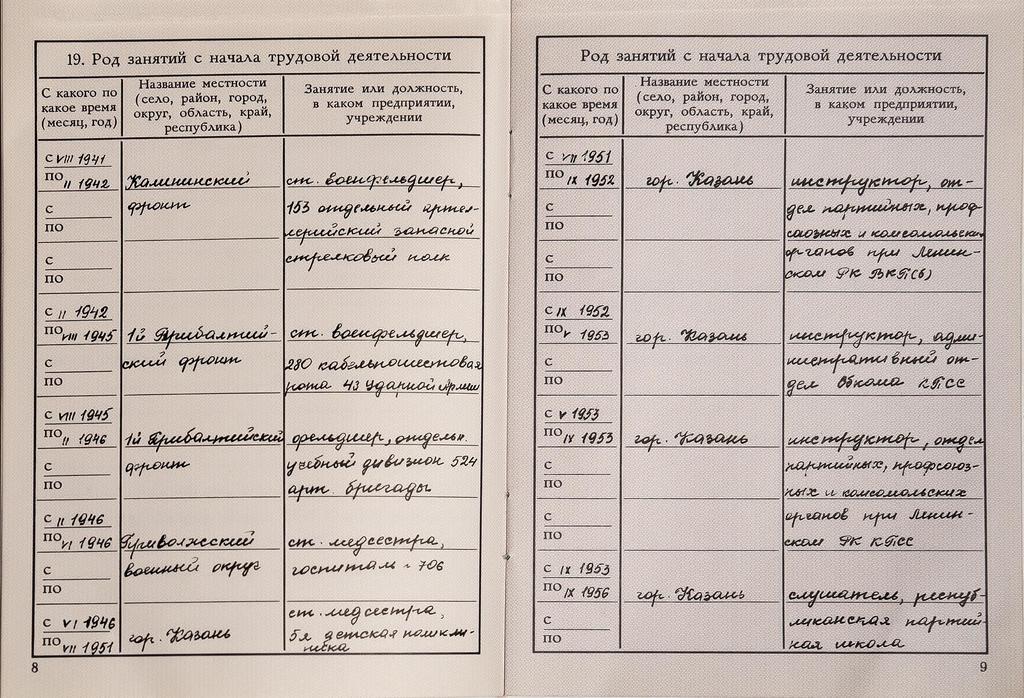 19. Род занятий с начала трудовой деятельности
С какого по
какое время
(месяц, год)
Название местности
(село, район, город,
округ, область, край,
республика)
Занятие или должность,
в каком предприятии,
учреждении
с VIII 1941
по II 1942
Калининский
фронт
ст. военфельдшер,
153 отдельный артел-
лерийский запасной
стрелковый полк
с
по
с
по
с II 1942
по VIII 1945
1й Прибалтий-
ский фронт
ст. военфельдшер,
280 кабельношестовая
рота 43 Ударной Армии
с
по
с VIII 1945
по II 1946
1й Прибалтийский
фронт
фельдшер, отдельн.
учебный дивизион 524
арт. бригады
с
по
с II 1946
по VI 1946
Приволжский
военный округ
ст. медсестра,
госпиталь - 706
с
по
с VI 1946
по VII 1951
гор. Казань
ст. медсестра,
5я детская поликли-
ника
8
Род занятий с начала трудовой деятельности
С какого по
какое время
(месяц, год)
Название местности
(село, район, город,
округ, область, край,
республика)
Занятие или должность,
в каком предприятии,
учреждении
с VII 1951
по IX 1952
гор. Казань
инструктор, от-
дел партийных, проф
союзных и комсомольских
органов при Ленин-
ском РК ВКП(б)
с
по
с
по
с IX 1952
по V 1953
гор. Казань
инструктор, адми-
нистративный от-
дел Обкома КПСС
с
по
с V 1953
по IX 1953
гор. Казань
инструктор, отдел
партийных, профсоюз-
ных и комсомольских
органов при Ленин-
ском РК КПСС
с
по
с
по
с IX 1953
по IX 1956
гор. Казань
слушатель, респуб-
ликанская партий-
ная школа
с
по
9